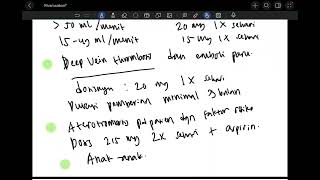 Rivaroxaban
> 50 ml/menit 20 mg 1x sehari
15-49 ml/menit 15 mg 1x sehari
Deep vein thrombosis dan emboli paru
dosisnya : 20 mg 1x sehari
Durasi pemberian minimal 3 bulan
Aterotrombosis pd pasien dgn faktor risiko
Dosis 2,5 mg 2x sehari + aspirin.
Anak-anak.